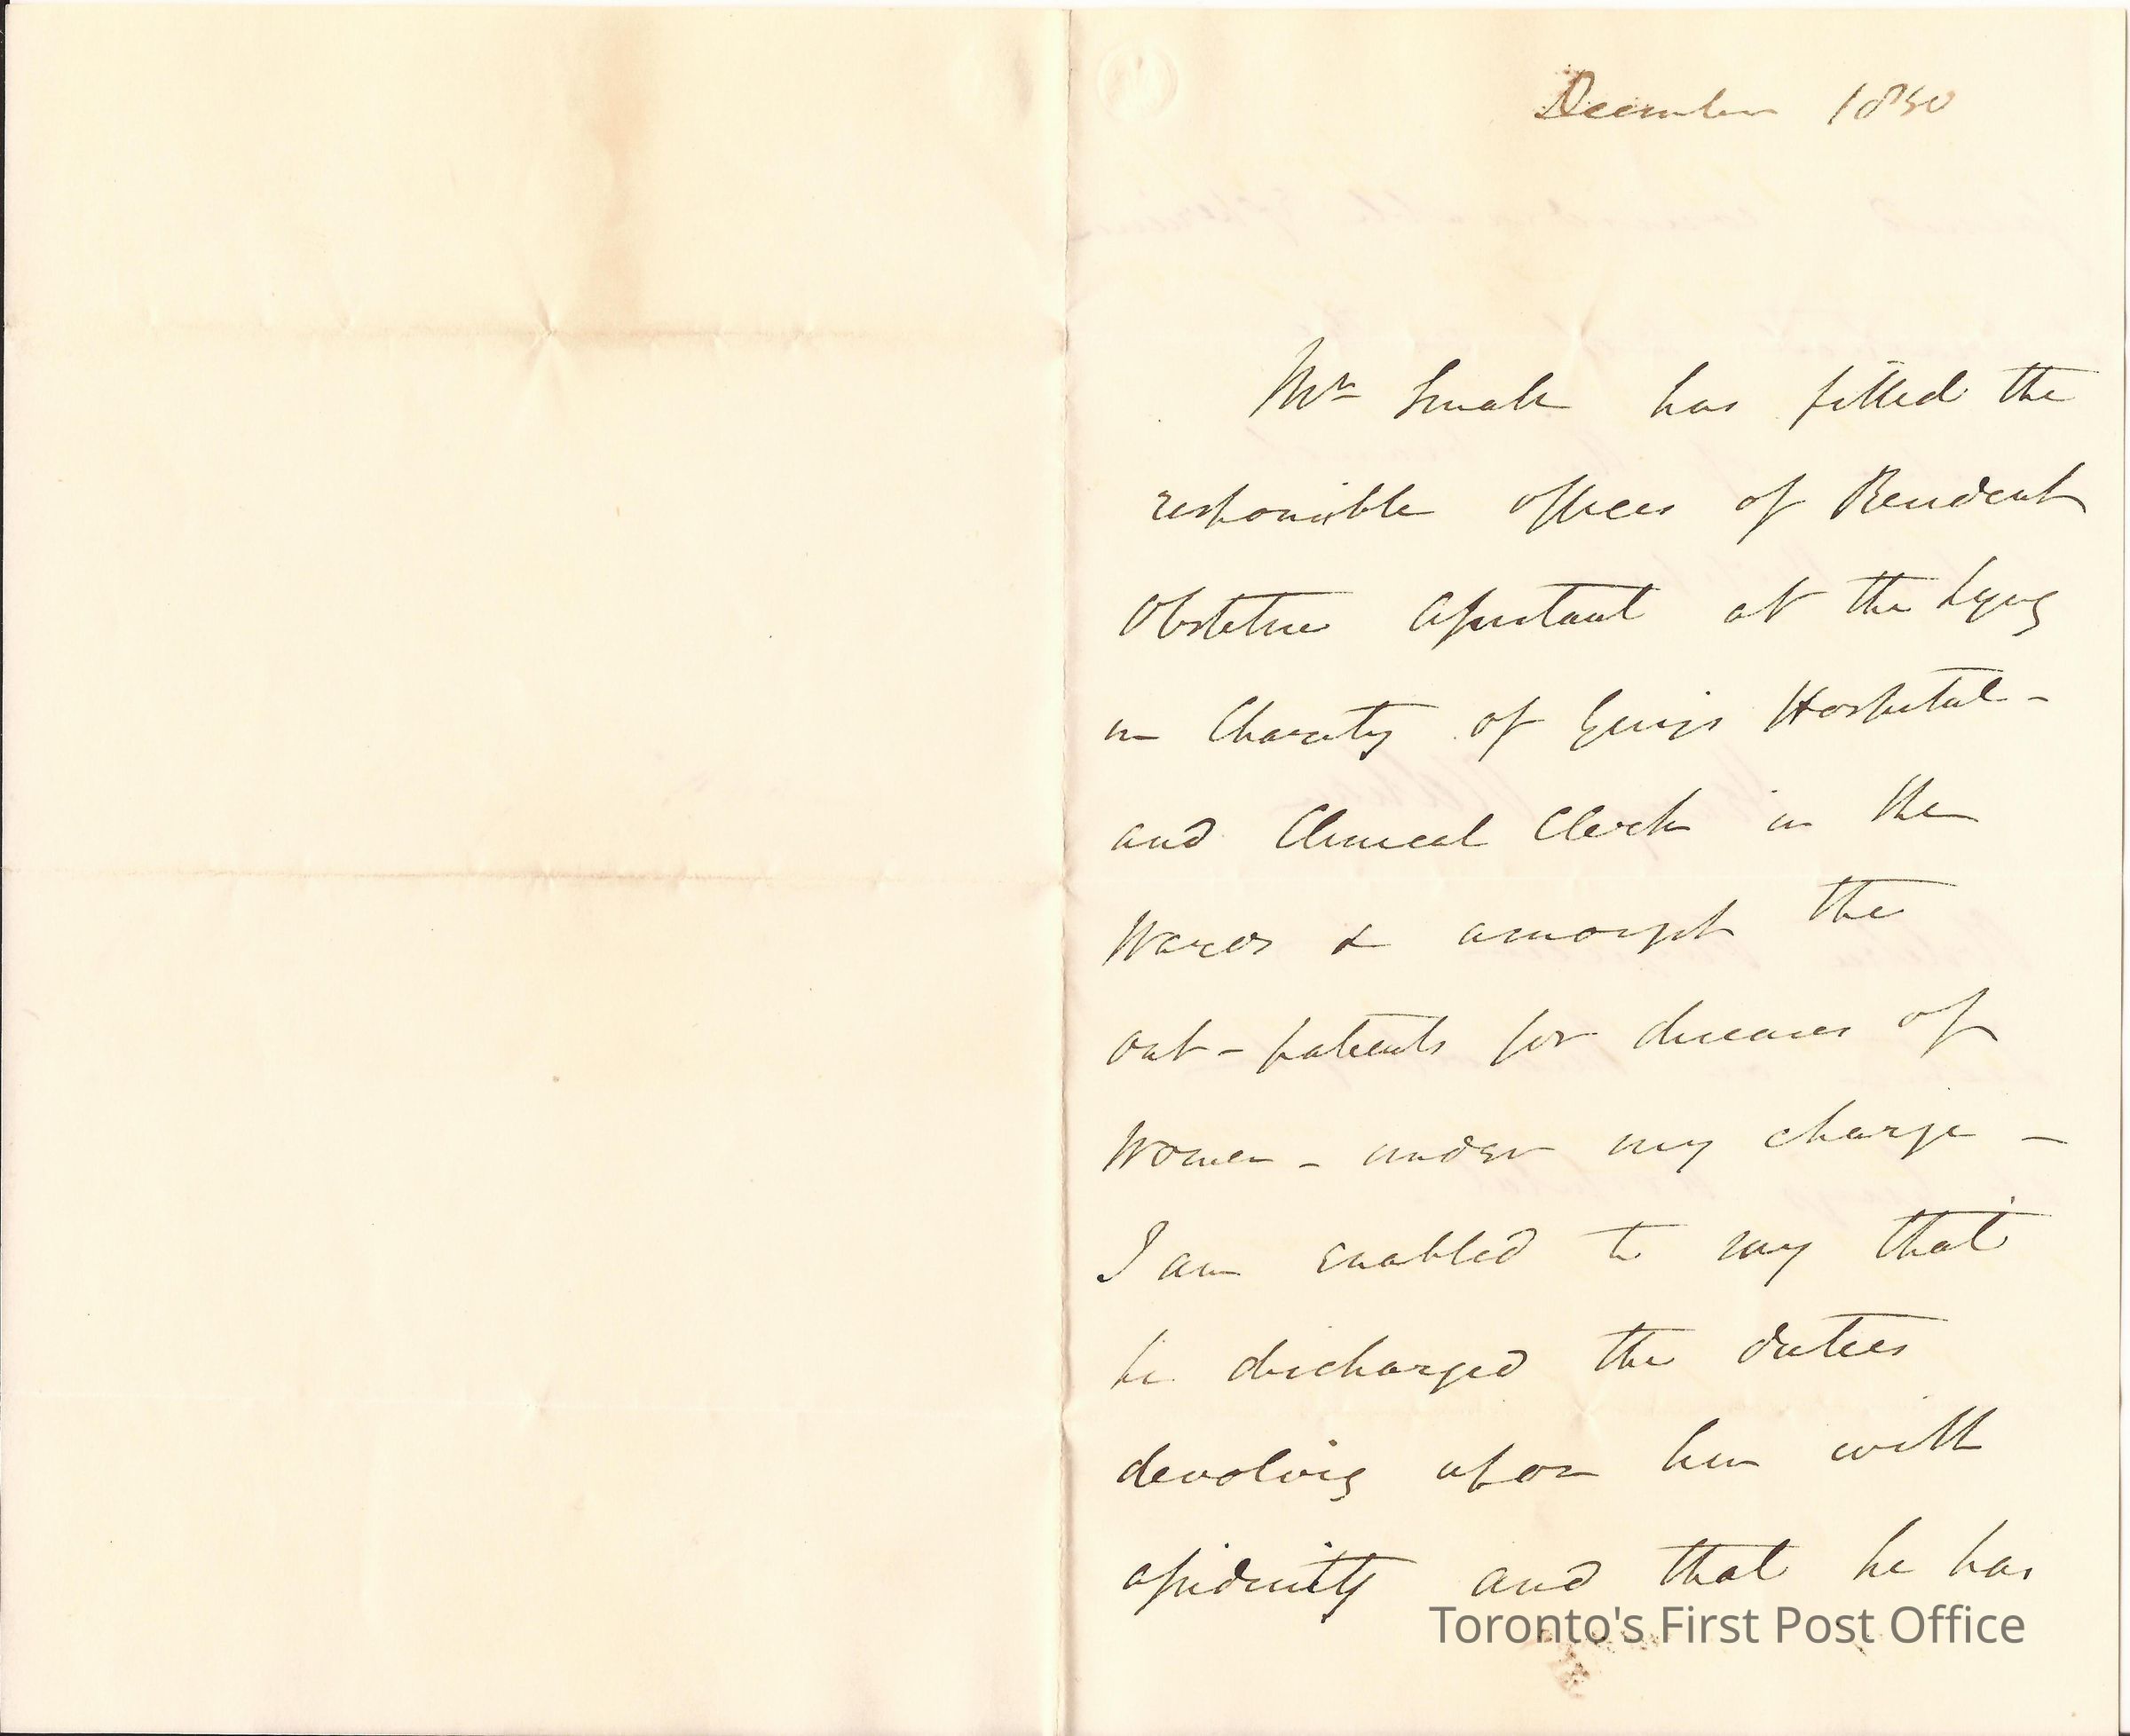 December 1850
Mr has filled the
responsible offices of Resident
Obstetric Assistant at the Lying
in Charity of Guys Hospital -
and Clinical Clerk in the
Wards & amongst the
out-patients for diseases of
Women - under my charge -
I am enabled to say that
he discharged the duties
devolving upon him with
assiduity and that he has
Toronto's First Post Office